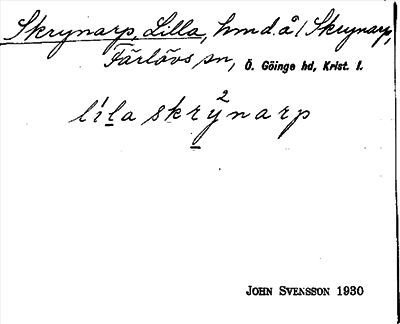 Skrynarp, Lilla, hmd. å 1 Skrynarp,
Färlövs sn, Ö. Göinge hd, Krist. l.
li̍la skry²narp
JOHN SVENSSON 1930